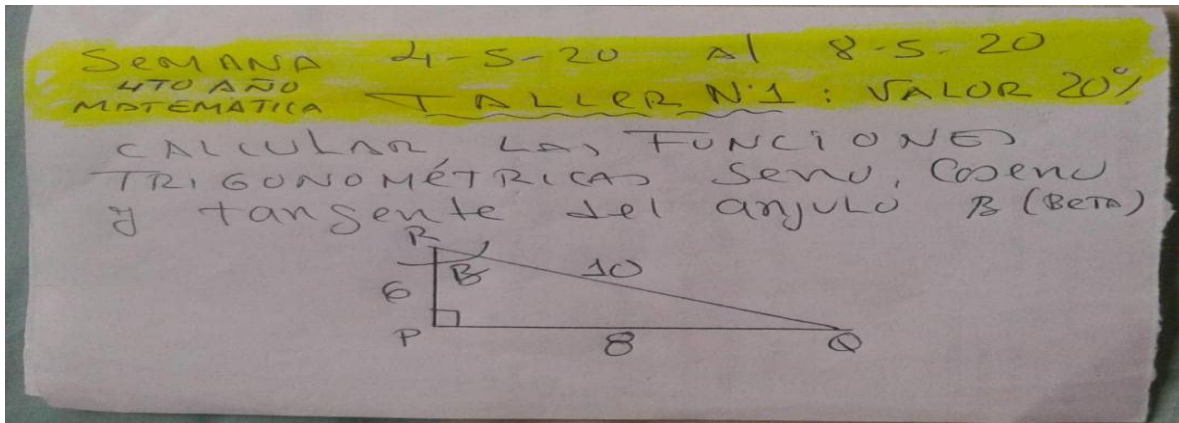 SEMANA 4-5-20 Al 8-5-20
4TO AÑO
MATEMATICA TALLER Nº1: VALOR 20%
CALCULAR LAS FUNCIONES
TRIGONOMÉTRICAS Seno, Coseno
y tangente del angulo B (BETA)
R
B 10
6
P 8 Q